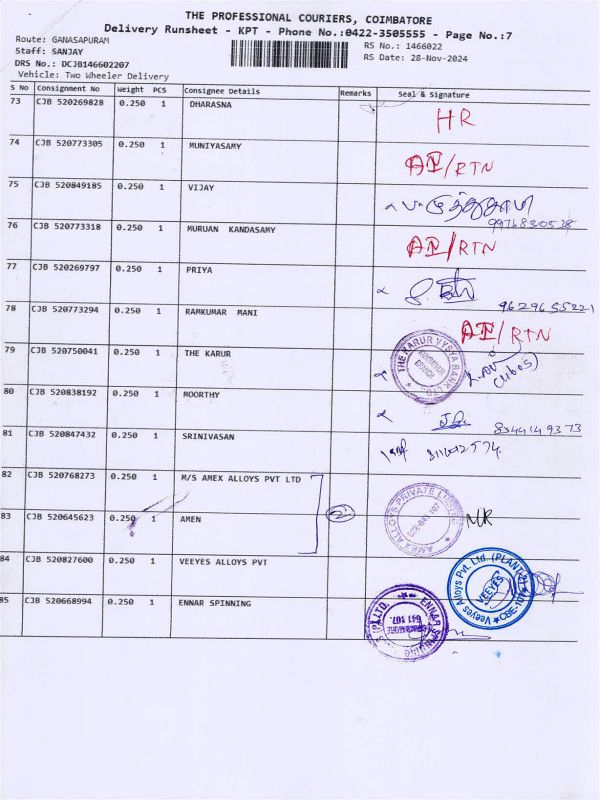 THE PROFESSIONAL COURIERS, COIMBATORE
Delivery Runsheet - KPT - Phone No.:0422-3505555 - Page No.:7
Route: GANASAPURAM
RS No.: 1466022
Staff: SANJAY
RS Date: 28-Nov-2024
DRS No.: DCJB146602207
Vehicle: Two Wheeler Delivery
S No Consignment No Weight PCS Consignee Details Remarks Seal & Signature
73 CJB 520269828 0.250 1 DHARASNA HR
74 CJB 520773305 0.250 1 MUNIYASAMY AI/RTN
75 CJB 520849185 0.250 1 VIJAY
9976830528
76 CJB 520773318 0.250 1 MURUAN KANDASAMY AI/RTN
77 CJB 520269797 0.250 1 PRIYA
9629655221
78 CJB 520773294 0.250 1 RAMKUMAR MANI AI/RTN
79 CJB 520750041 0.250 1 THE KARUR THE KARUR VYSYA BANK LTD
80 CJB 520838192 0.250 1 MOORTHY
8344149373
81 CJB 520847432 0.250 1 SRINIVASAN
82 CJB 520768273 0.250 1 M/S AMEX ALLOYS PVT LTD
83 CJB 520645623 0.250 1 AMEN 2 AMEX ALLOYS PRIVATE LIMITED
84 CJB 520827600 0.250 1 VEEYES ALLOYS PVT Veeyes Alloys Pvt. Ltd. (PLANT-2) CBE-107 VEEYES
85 CJB 520668994 0.250 1 ENNAR SPINNING ENNAR SPINNING 641 107.